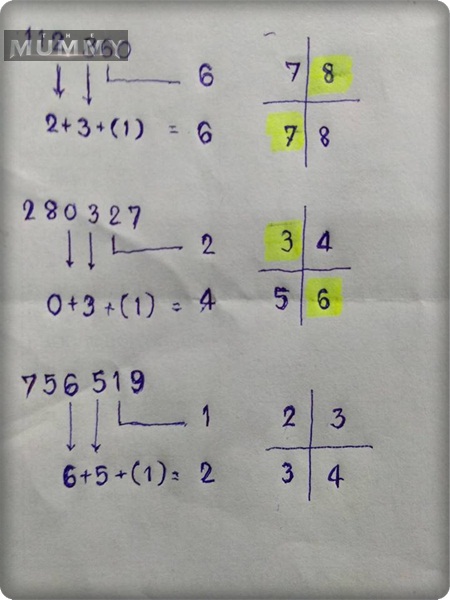 MUMMY
360 6 7 8
2+3+(1) = 6 7 8
280327 2 3 4
0+3+(1) = 4 5 6
756519 1 2 3
6+5+(1)= 2 3 4